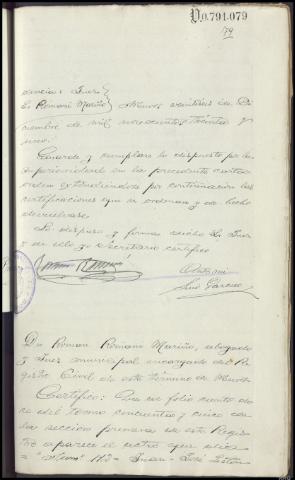 D.0.791.079
79
dencia: Juez
Sr Romani Mariño Nueve veintiseis de Di
ciembre de mil novecientos treinta y
uno.
Guarde y cumplase lo dispuesto por la
Superioridad en la precedente carta
orden extendiendose por continuación las
certificaciones que se ordenan y de hecho
devuelvase
Lo dispuso y firma dicho Sr Juez
y de ello yo Secretario certifico
Ante mi
Luis Garcia
Dn Roman Romani Mariño, abogado
y Juez municipal encargado del Re
gistro Civil de este término de
Certifico: Que en folio ciento do
ce del tomo cincuenta y cinco de
la sección primera de este Regis
tro aparece el acta que dice:
= "Num" 112= Juan - José